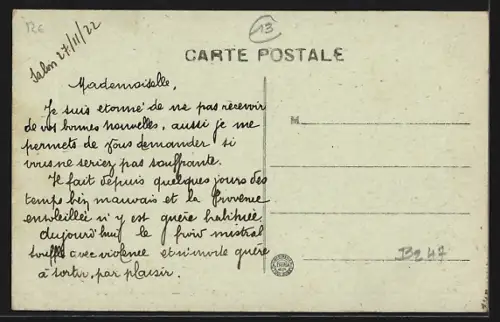 126
13
CARTE POSTALE
Salon 27/11/22
Mademoiselle,
Je suis étonné de ne pas recevoir
de vos bonnes nouvelles, aussi je me
permets de vous demander si
vous ne seriez pas souffrante.
Il fait depuis quelques jours des
temps bien mauvais et la Provence
ensoleillée n'y est guère habituée
aujourd'hui le froid mistral
souffle avec violence et n'invite guère
à sortir, par plaisir.
M
B247